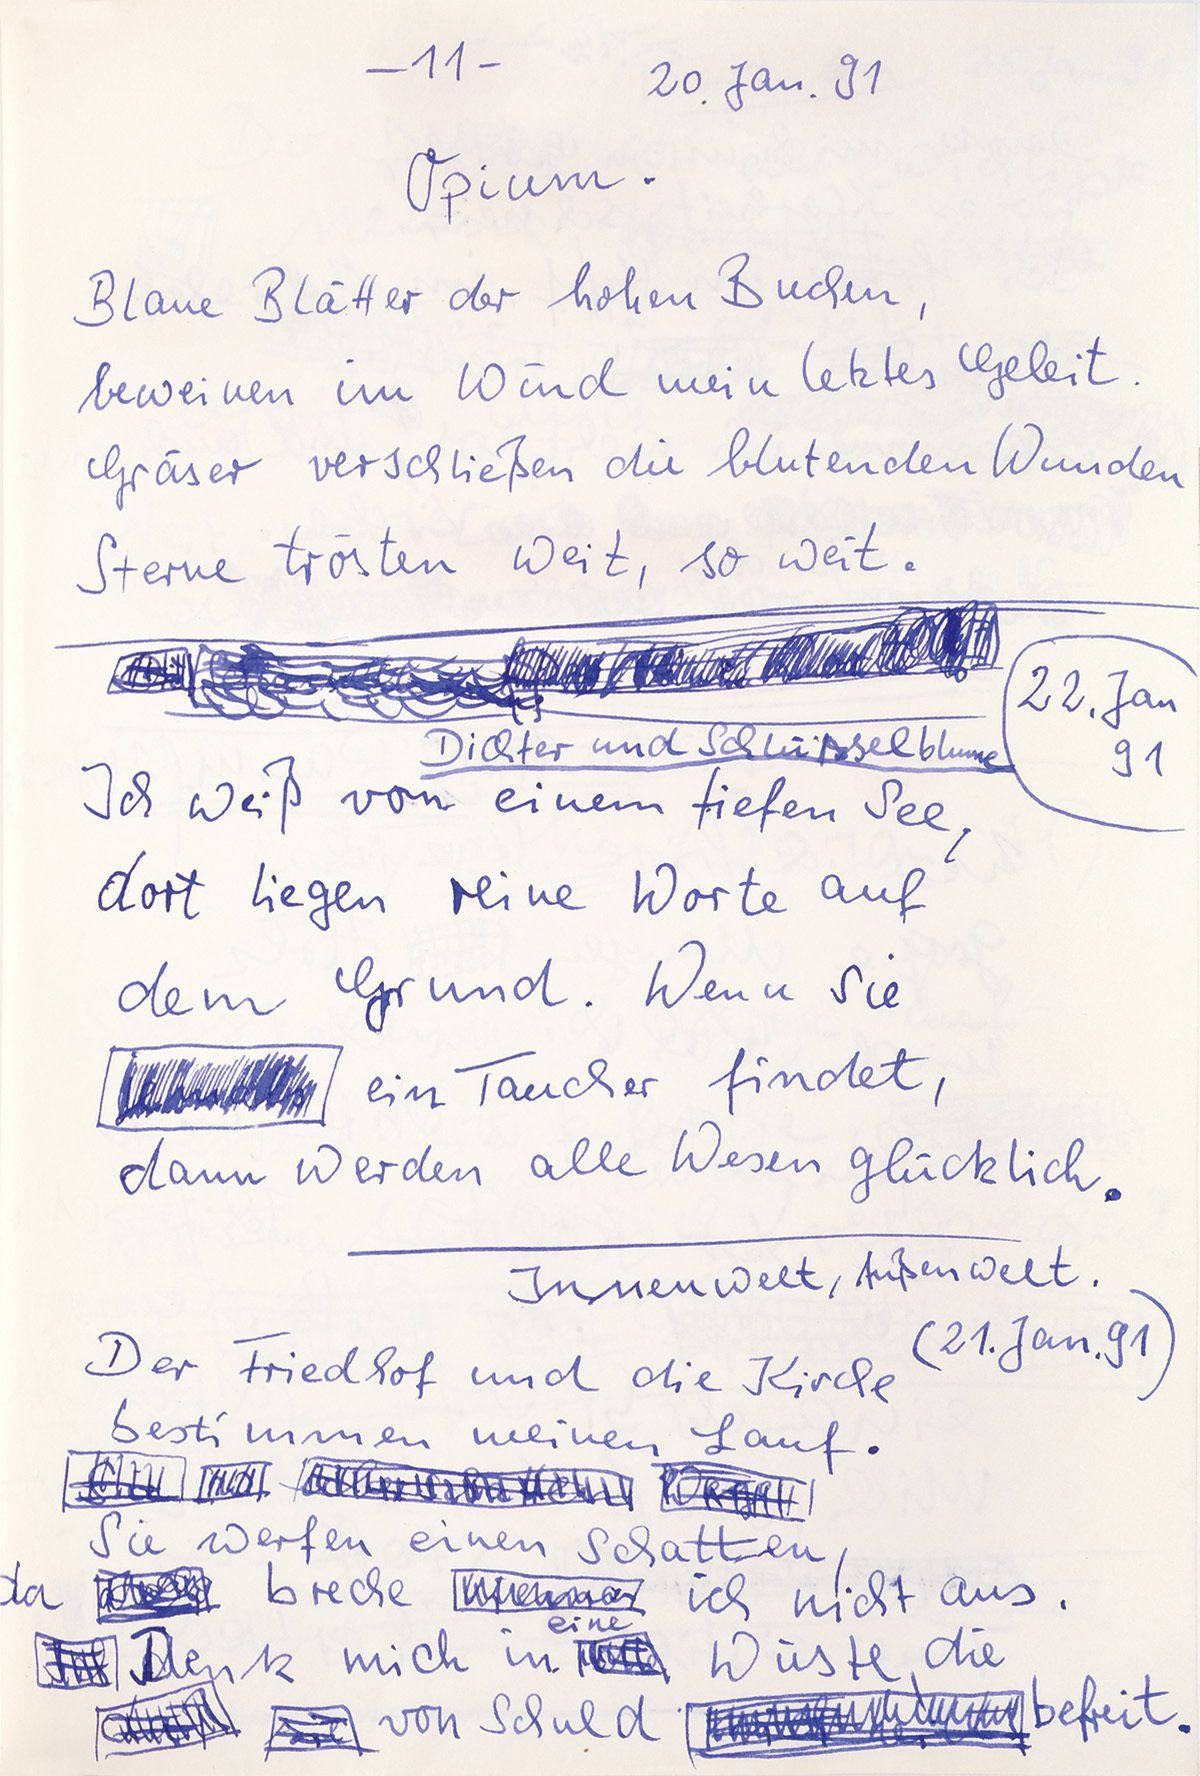 -11-
20. Jan. 91
Opium.
Blaue Blätter der hohen Buchen,
beweinen im Wind mein letztes Geleit.
Gräser verschließen die blutenden Wunden
Sterne trösten weit, so weit.
22. Jan
91
Dichter und Schlüsselblume
Ich weiß von einem tiefen See,
dort liegen reine Worte auf
dem Grund. Wenn Sie
ein Taucher findet,
dann werden alle Wesen glücklich.
Innenwelt, Außenwelt.
(21. Jan. 91)
Der Friedhof und die Kirche
bestimmen meinen Lauf.
Sie werfen einen Schatten,
da breche ich nicht aus.
Denk mich in eine Wüste, die
von Schuld befreit.